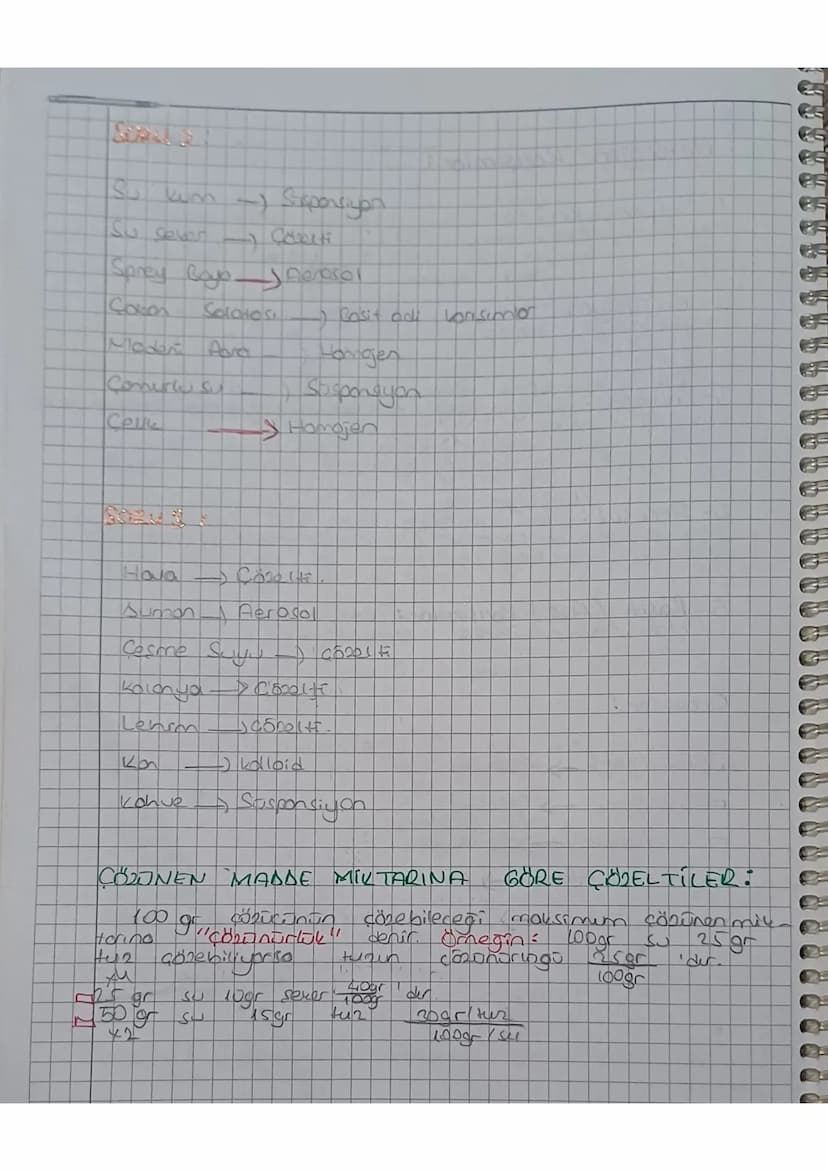 SORU 1:
Su kum → Süsponsiyon
Su şeker → Çözelti
Sprey Boya → Aerosol
Çoban Salatası → Basit adi karışımlar
Madeni Para Homojen
Çamurlu su Süsponsiyon
Çelik → Homojen
SORU 1:
Hava → Çözelti.
Duman → Aerosol
Çeşme Suyu → çözelti
Kolonya → Çözelti
Lehim → çözelti.
Kan → kolloid
Kahve → Süsponsiyon
ÇÖZÜNEN MADDE MİKTARINA GÖRE ÇÖZELTİLER:
100 gr çözücünün çözebileceği maksimum çözünen mik-
tarına "çözünürlük" denir. Örneğin: 100gr su 25gr
tuz çözebiliyorsa tuzun çözünürlüğü 25gr 'dır.
100gr
x4
25 gr su 10gr şeker 40gr 'dır
100gr
50 gr su 15gr tuz 30gr/tuz
x2 100gr/su